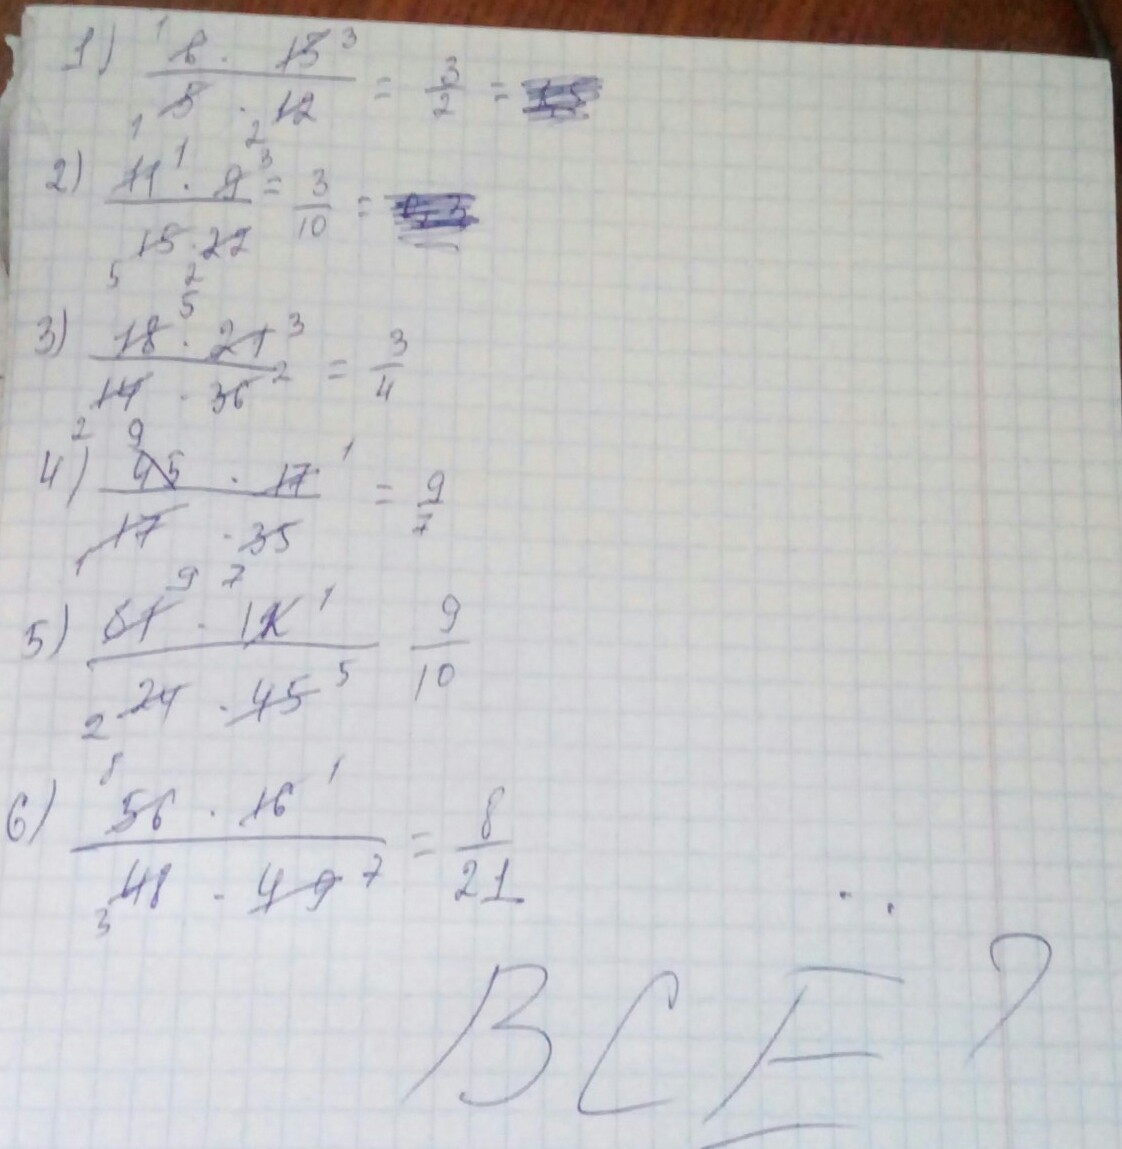 1) ¹6 · 15³ / ₁5 · ₂12 = 3/2 =
2) 11¹ · 9³ / ₅15 · ₂22 = 3/10 =
3) 18 · 21³ / ₂14 · 36² = 3/4
4) ⁹45 · 17¹ / ₁17 · 35 = 9/7
7
5) 81⁹ · 12¹ / ₂24 · 45⁵ 9/10
6) ⁸56 · 16¹ / ₃48 · 49⁷ = 8/21
ВСЁ?